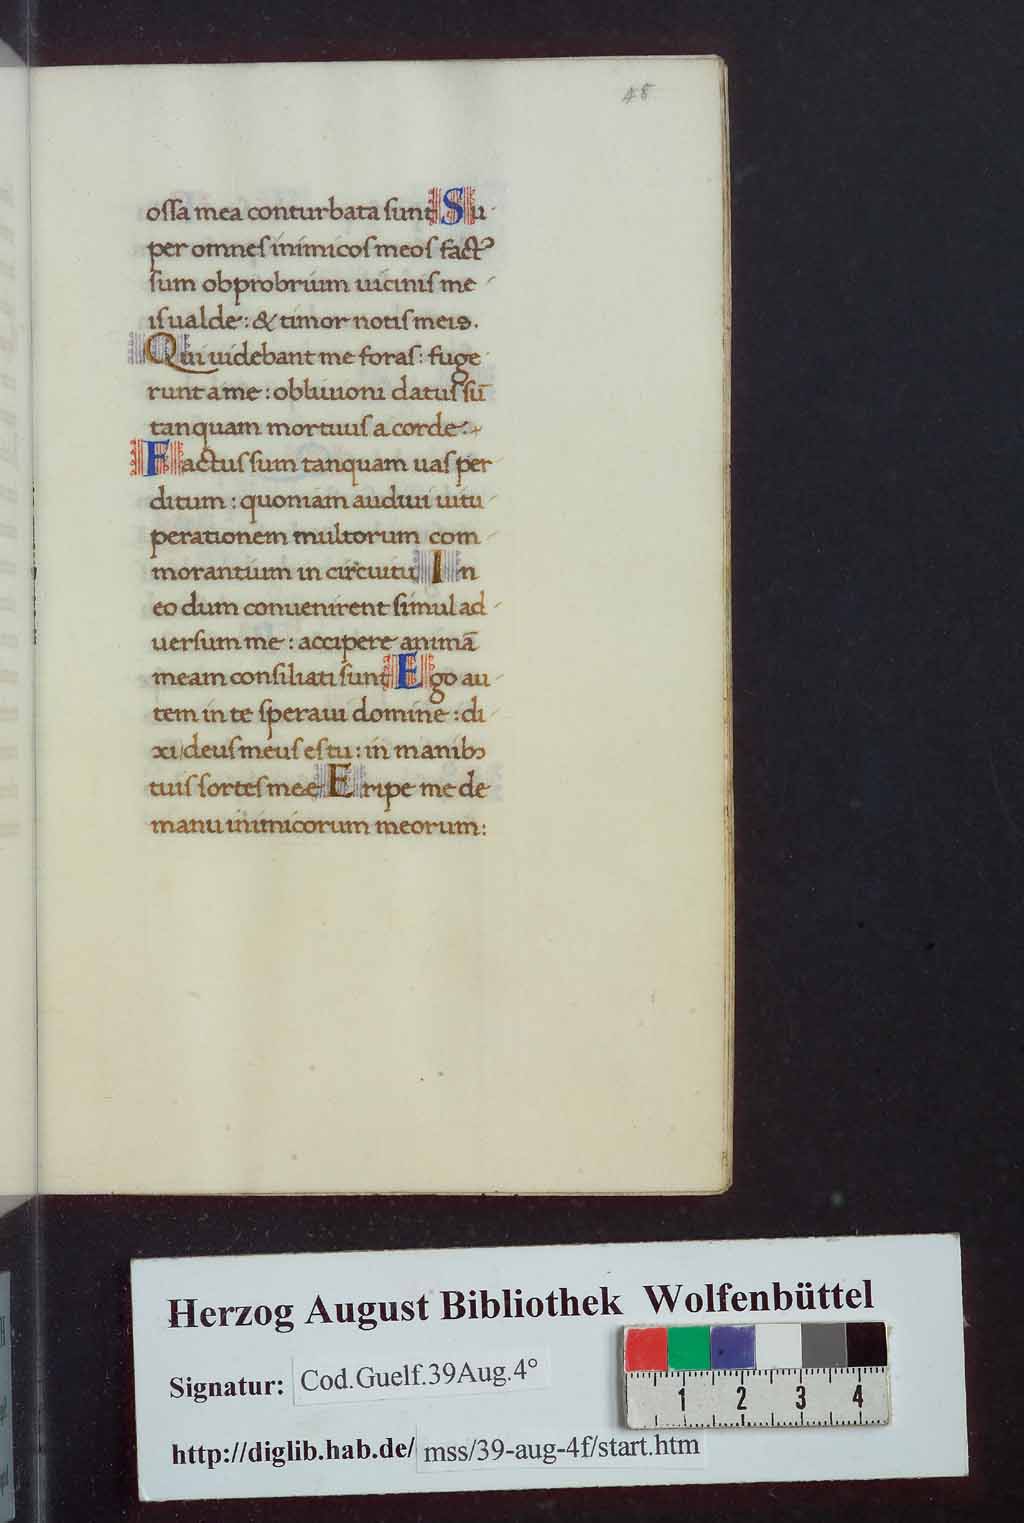 48
ossa mea conturbata sunt Su-
per omnes inimicos meos fact⁹
sum obprobrium uicinis me-
is ualde: & timor notis meis.
Qui uidebant me foras: fuge-
runt a me: obliuioni datus sū
tanquam mortuus a corde:
Factus sum tanquam uas per-
ditum: quoniam audiui uitu-
perationem multorum com-
morantium in circuitu In
eo dum conuenirent simul ad-
uersum me: accipere animā
meam consiliati sunt Ego au-
tem in te speraui domine: di-
xi deus meus es tu: in manibꝫ
tuis sortes meę Eripe me de
manu inimicorum meorum:
Herzog August Bibliothek Wolfenbüttel
Signatur: Cod.Guelf.39Aug.4°
1 2 3 4
http://diglib.hab.de/ mss/39-aug-4f/start.htm